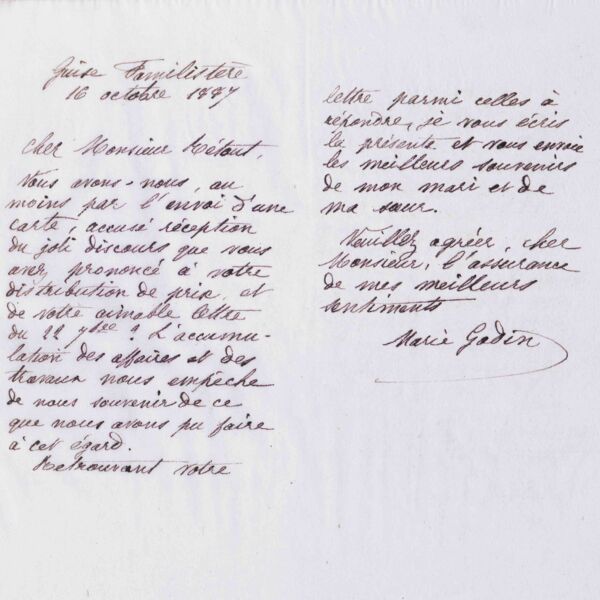 Guise Familistère
16 octobre 1887
Cher Monsieur Rétout,
Vous avons-nous, au
moins par l'envoi d'une
carte, accusé réception
du joli discours que vous
avez prononcé à votre
distribution de prix, et
de votre aimable lettre
du 22 7bre ? L'accumu-
lation des affaires et des
travaux nous empêche
de nous souvenir de ce
que nous avons pu faire
à cet égard.
Retrouvant votre
lettre parmi celles à
répondre, je vous écris
la présente et vous envoie
les meilleurs souvenirs
de mon mari et de
ma sœur.
Veuillez agréer, cher
Monsieur, l'assurance
de mes meilleurs
sentiments
Marie Godin